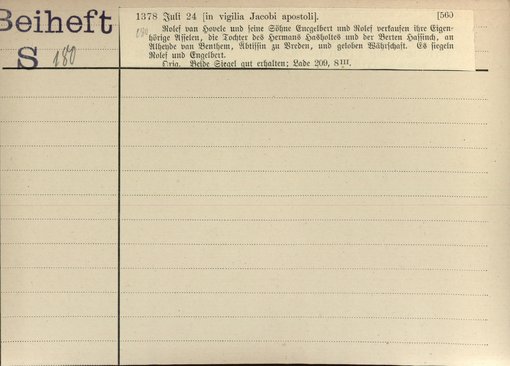 Beiheft
S 180
1378 Juli 24 [in vigilia Jacobi apostoli]. [560
Rolef van Hovele und seine Söhne Engelbert und Rolef verkaufen ihre Eigen-
hörige Asselen, die Tochter des Hermans Hasholtes und der Berten Hassinch, an
Alheyde van Benthem, Äbtissin zu Vreden, und geloben Währschaft. Es siegeln
Rolef und Engelbert.
Orig. Beide Siegel gut erhalten; Lade 209, 8 III.